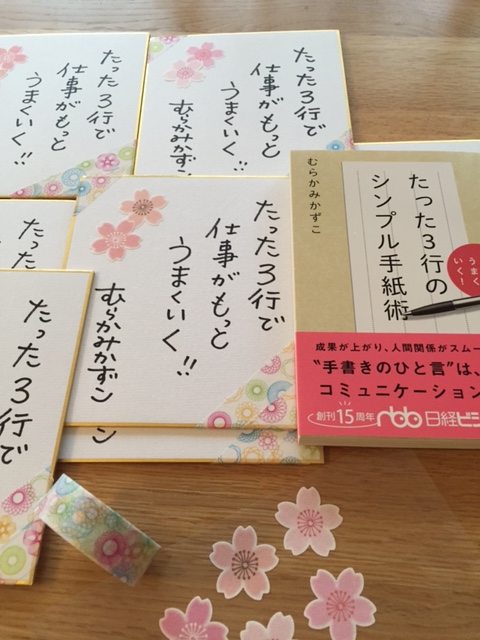 たった3行で
仕事がもっと
うまくいく!!
たった3行で
仕事がもっと
うまくいく!!
むらかみかずこ
たった3行で
仕事がもっと
うまくいく!!
むらかみかずこ
たった
たった3行で
こ
むらかみかずこ
たった3行の
シンプル手紙術
うまく
いく!
成果が上がり、人間関係がスムー
"手書きのひと言"は、
コミュニケーション
創刊15周年
nbb
日経ビジ